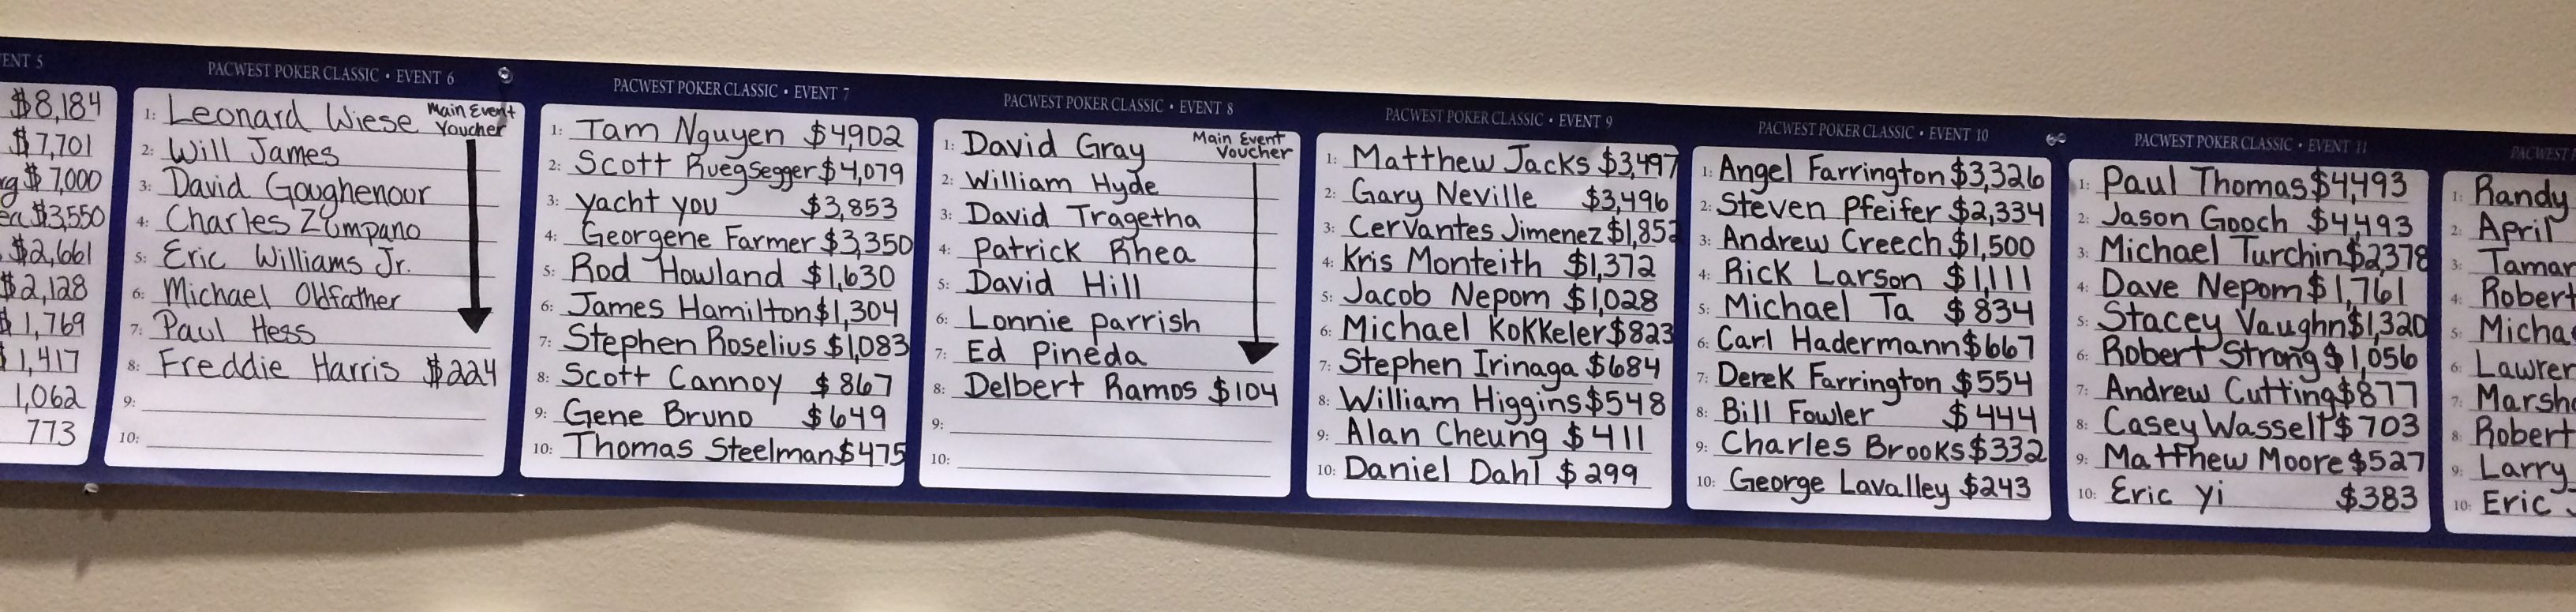 ENT 5
$8,184
$7,701
rg $7,000
ea $3,550
$2,661
$2,128
$1,769
$1,417
1,062
773
PACWEST POKER CLASSIC • EVENT 6
1: Leonard Wiese Main Event Voucher
2: Will James
3: David Goughenour
4: Charles Zumpano
5: Eric Williams Jr.
6: Michael Oldfather
7: Paul Hess
8: Freddie Harris $224
9:
10:
PACWEST POKER CLASSIC • EVENT 7
1: Tam Nguyen $4,902
2: Scott Ruegsegger $4,079
3: yacht you $3,853
4: Georgene Farmer $3,350
5: Rod Howland $1,630
6: James Hamilton $1,304
7: Stephen Roselius $1,083
8: Scott Cannoy $867
9: Gene Bruno $649
10: Thomas Steelman $475
PACWEST POKER CLASSIC • EVENT 8
1: David Gray Main Event Voucher
2: William Hyde
3: David Tragetha
4: Patrick Rhea
5: David Hill
6: Lonnie parrish
7: Ed Pineda
8: Delbert Ramos $104
9:
10:
PACWEST POKER CLASSIC • EVENT 9
1: Matthew Jacks $3,497
2: Gary Neville $3,496
3: Cervantes Jimenez $1,852
4: Kris Monteith $1,372
5: Jacob Nepom $1,028
6: Michael Kokkeler $823
7: Stephen Irinaga $684
8: William Higgins $548
9: Alan Cheung $411
10: Daniel Dahl $299
PACWEST POKER CLASSIC • EVENT 10
1: Angel Farrington $3,326
2: Steven Pfeifer $2,334
3: Andrew Creech $1,500
4: Rick Larson $1,111
5: Michael Ta $834
6: Carl Hadermann $667
7: Derek Farrington $554
8: Bill Fowler $444
9: Charles Brooks $332
10: George Lavalley $243
PACWEST POKER CLASSIC • EVENT 11
1: Paul Thomas $4,493
2: Jason Gooch $4,493
3: Michael Turchin $2,378
4: Dave Nepom $1,761
5: Stacey Vaughn $1,320
6: Robert Strong $1,056
7: Andrew Cutting $877
8: Casey Wasselt $703
9: Matthew Moore $527
10: Eric Yi $383
PACWEST P
1: Randy
2: April
3: Tamar
4: Robert
5: Micha
6: Lawren
7: Marsh
8: Robert
9: Larry
10: Eric